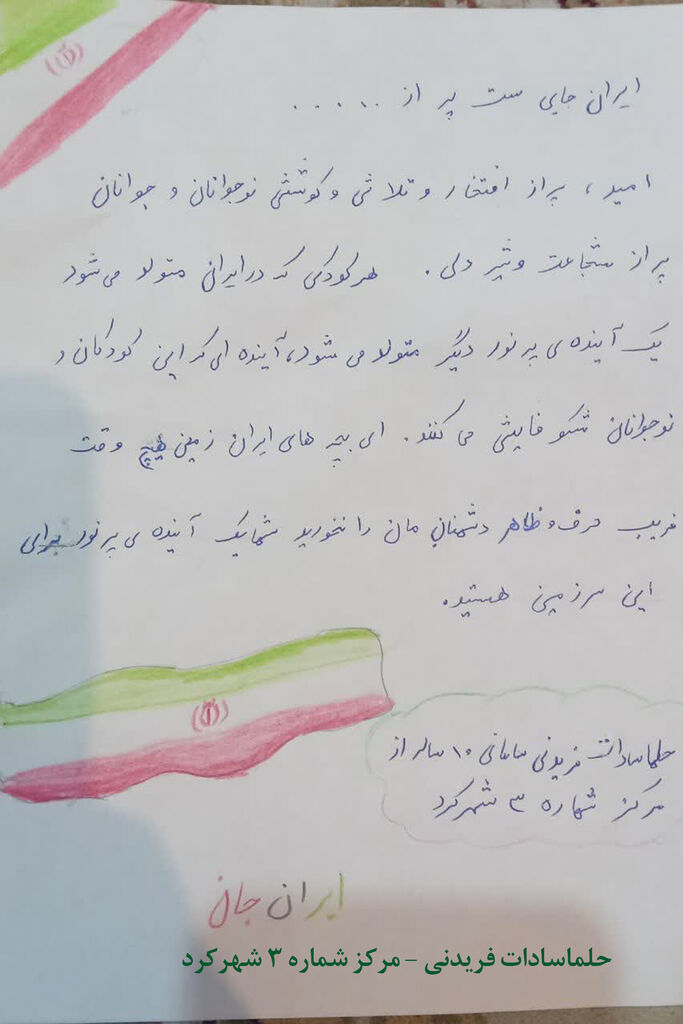 ایران جایی ست پر از ......
امید ، پر از افتخار و تلاش و کوشش نوجوانان و جوانان
پر از شجاعت و شیر دلی . هر کودکی که در ایران متولد می شود
یک آینده ی پر نور دیگر متولد می شود، آینده ای که این کودکان و
نوجوانان شکوفایش می کنند . ای بچه های ایران زمین هیچ وقت
فریب حرف و ظاهر دشمنان مان را نخورید شما یک آینده ی پر نور برای
این سرزمین هستید.
حلماسادات فریدنی سامانی ۱۰ ساله از
مرکز شماره ۳ شهرکرد
ایران جان
حلماسادات فریدنی - مرکز شماره ۳ شهرکرد